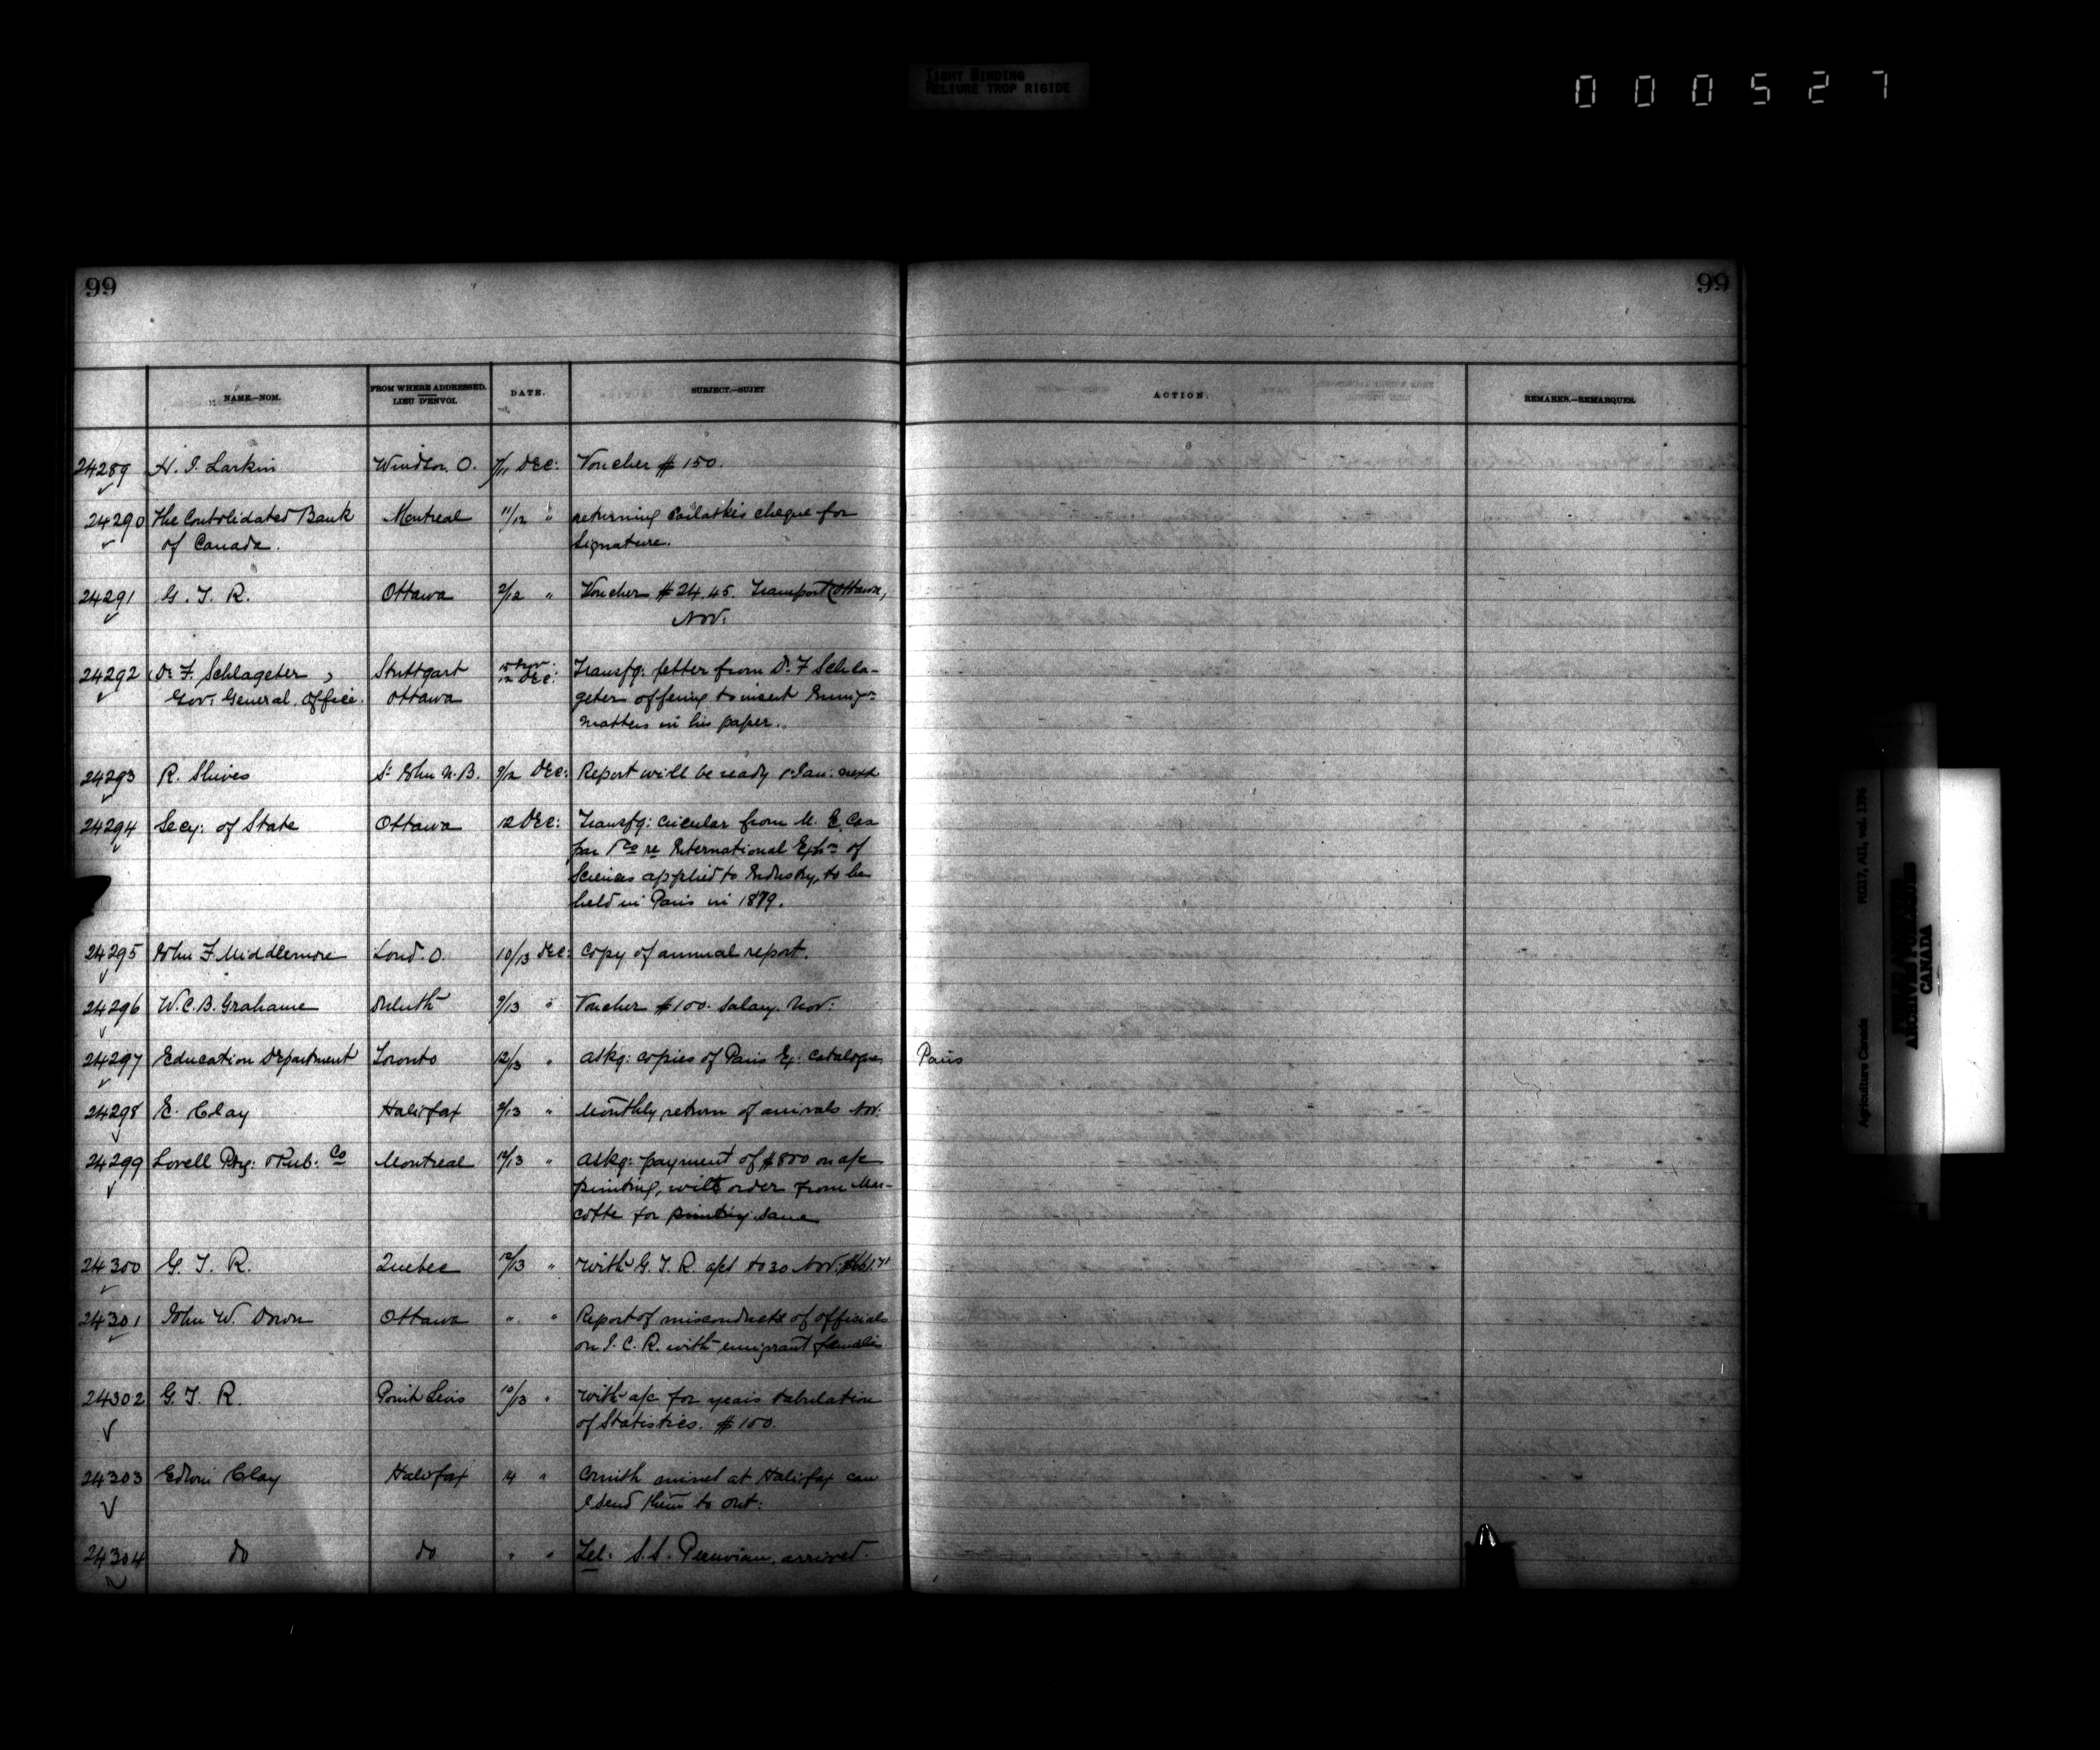 TIGHT BINDING
RELIURE TROP RIGIDE
000527
99
99
NAME.—NOM.
FROM WHERE ADDRESSED.
LIEU D'ENVOI.
DATE.
SUBJECT.—SUJET
ACTION.
REMARKS.—REMARQUES.
24289 H. I. Larkin Windsor O. 7/11 Dec: Voucher $150.
24290 The Consolidated Bank Montreal 11/12 " returning cheque for
of Canada. signature.
24291 G. T. R. Ottawa 2/12 " Voucher $24.45. Transport Ottawa,
Nov.
24292 Dr F. Schlageter, Stuttgart Transfg: letter from Dr F Schla-
Gov: General. Office. Ottawa 12 Dec: geter offering to insert Emigon
matters in his paper.
24293 R. Shives St John N.B. 9/12 Dec: Report will be ready 1 Jan: next
24294 Secy: of State Ottawa 12 Dec: Transfg: circular from M. E. Cas
par re International Exhn of
Sciences applied to Industry, to be
held in Paris in 1879.
24295 John F Middlemore Lond. O. 10/13 Dec: Copy of annual report.
24296 W. C. B. Grahame Duluth 9/13 " Voucher $100. Salary. Nov:
24297 Education Department Toronto 12/13 " askg: copies of Paris Ex: Catalogues Paris
24298 E. Clay Halifax 9/13 " Monthly return of arrivals Nov.
24299 Lovell Ptg: & Pub: Co Montreal 12/13 " askg: payment of $800 on a/c
printing, with order from Mar-
cotte for printing same
24300 G. T. R. Quebec 12/13 " with G. T. R. a/ct to 30 Nov:
24301 John W. Down Ottawa " " Report of misconduct of officials
on I. C. R. with emigrant females
24302 G. T. R. Point Levis 10/13 " with a/c for years tabulation
of Statistics. $100.
24303 Edwin Clay Halifax 14 " Cornish miners at Halifax can
I send them to Ont:
24304 do do " " Tel: S.S. Peruvian, arrived.
Agriculture Canada
RG17, AII, vol. 1396
PUBLIC ARCHIVES
ARCHIVES PUBLIQUES
CANADA